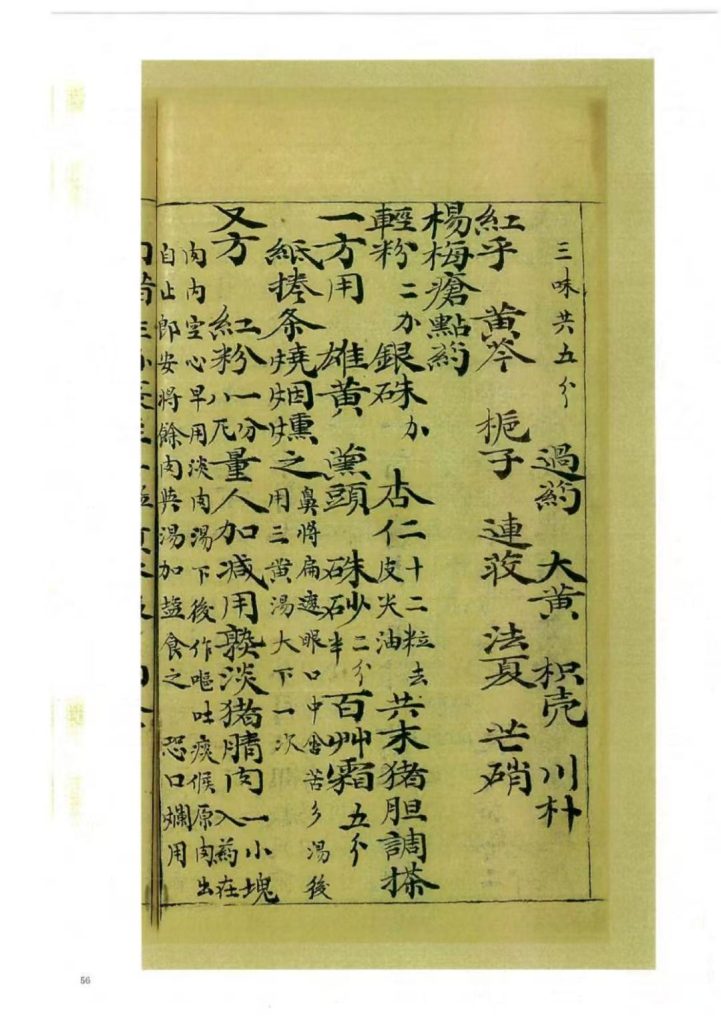 三味共五分
過葯 大黃 枳壳 川朴
紅乎 黃芩 梔子 連蔆 法夏 芒硝
楊梅瘡點葯
輕粉二分 銀硃分 杏仁二十二粒去皮尖油 共末猪胆調搽
一方用 雄黃 薰頭 硃砂二分半 百艸霜五分
紙捲条燒烟熏之 鼻將扁遮眼口中含苦多湯後
用三黃湯大下一次
又方 紅粉一分八厄量人加减用熟淡猪腈肉一小塊
入葯在
肉内空心早用淡肉湯下後作嘔吐痰候原肉出
自止郎安將餘肉與湯加盐食之 恐口爛用